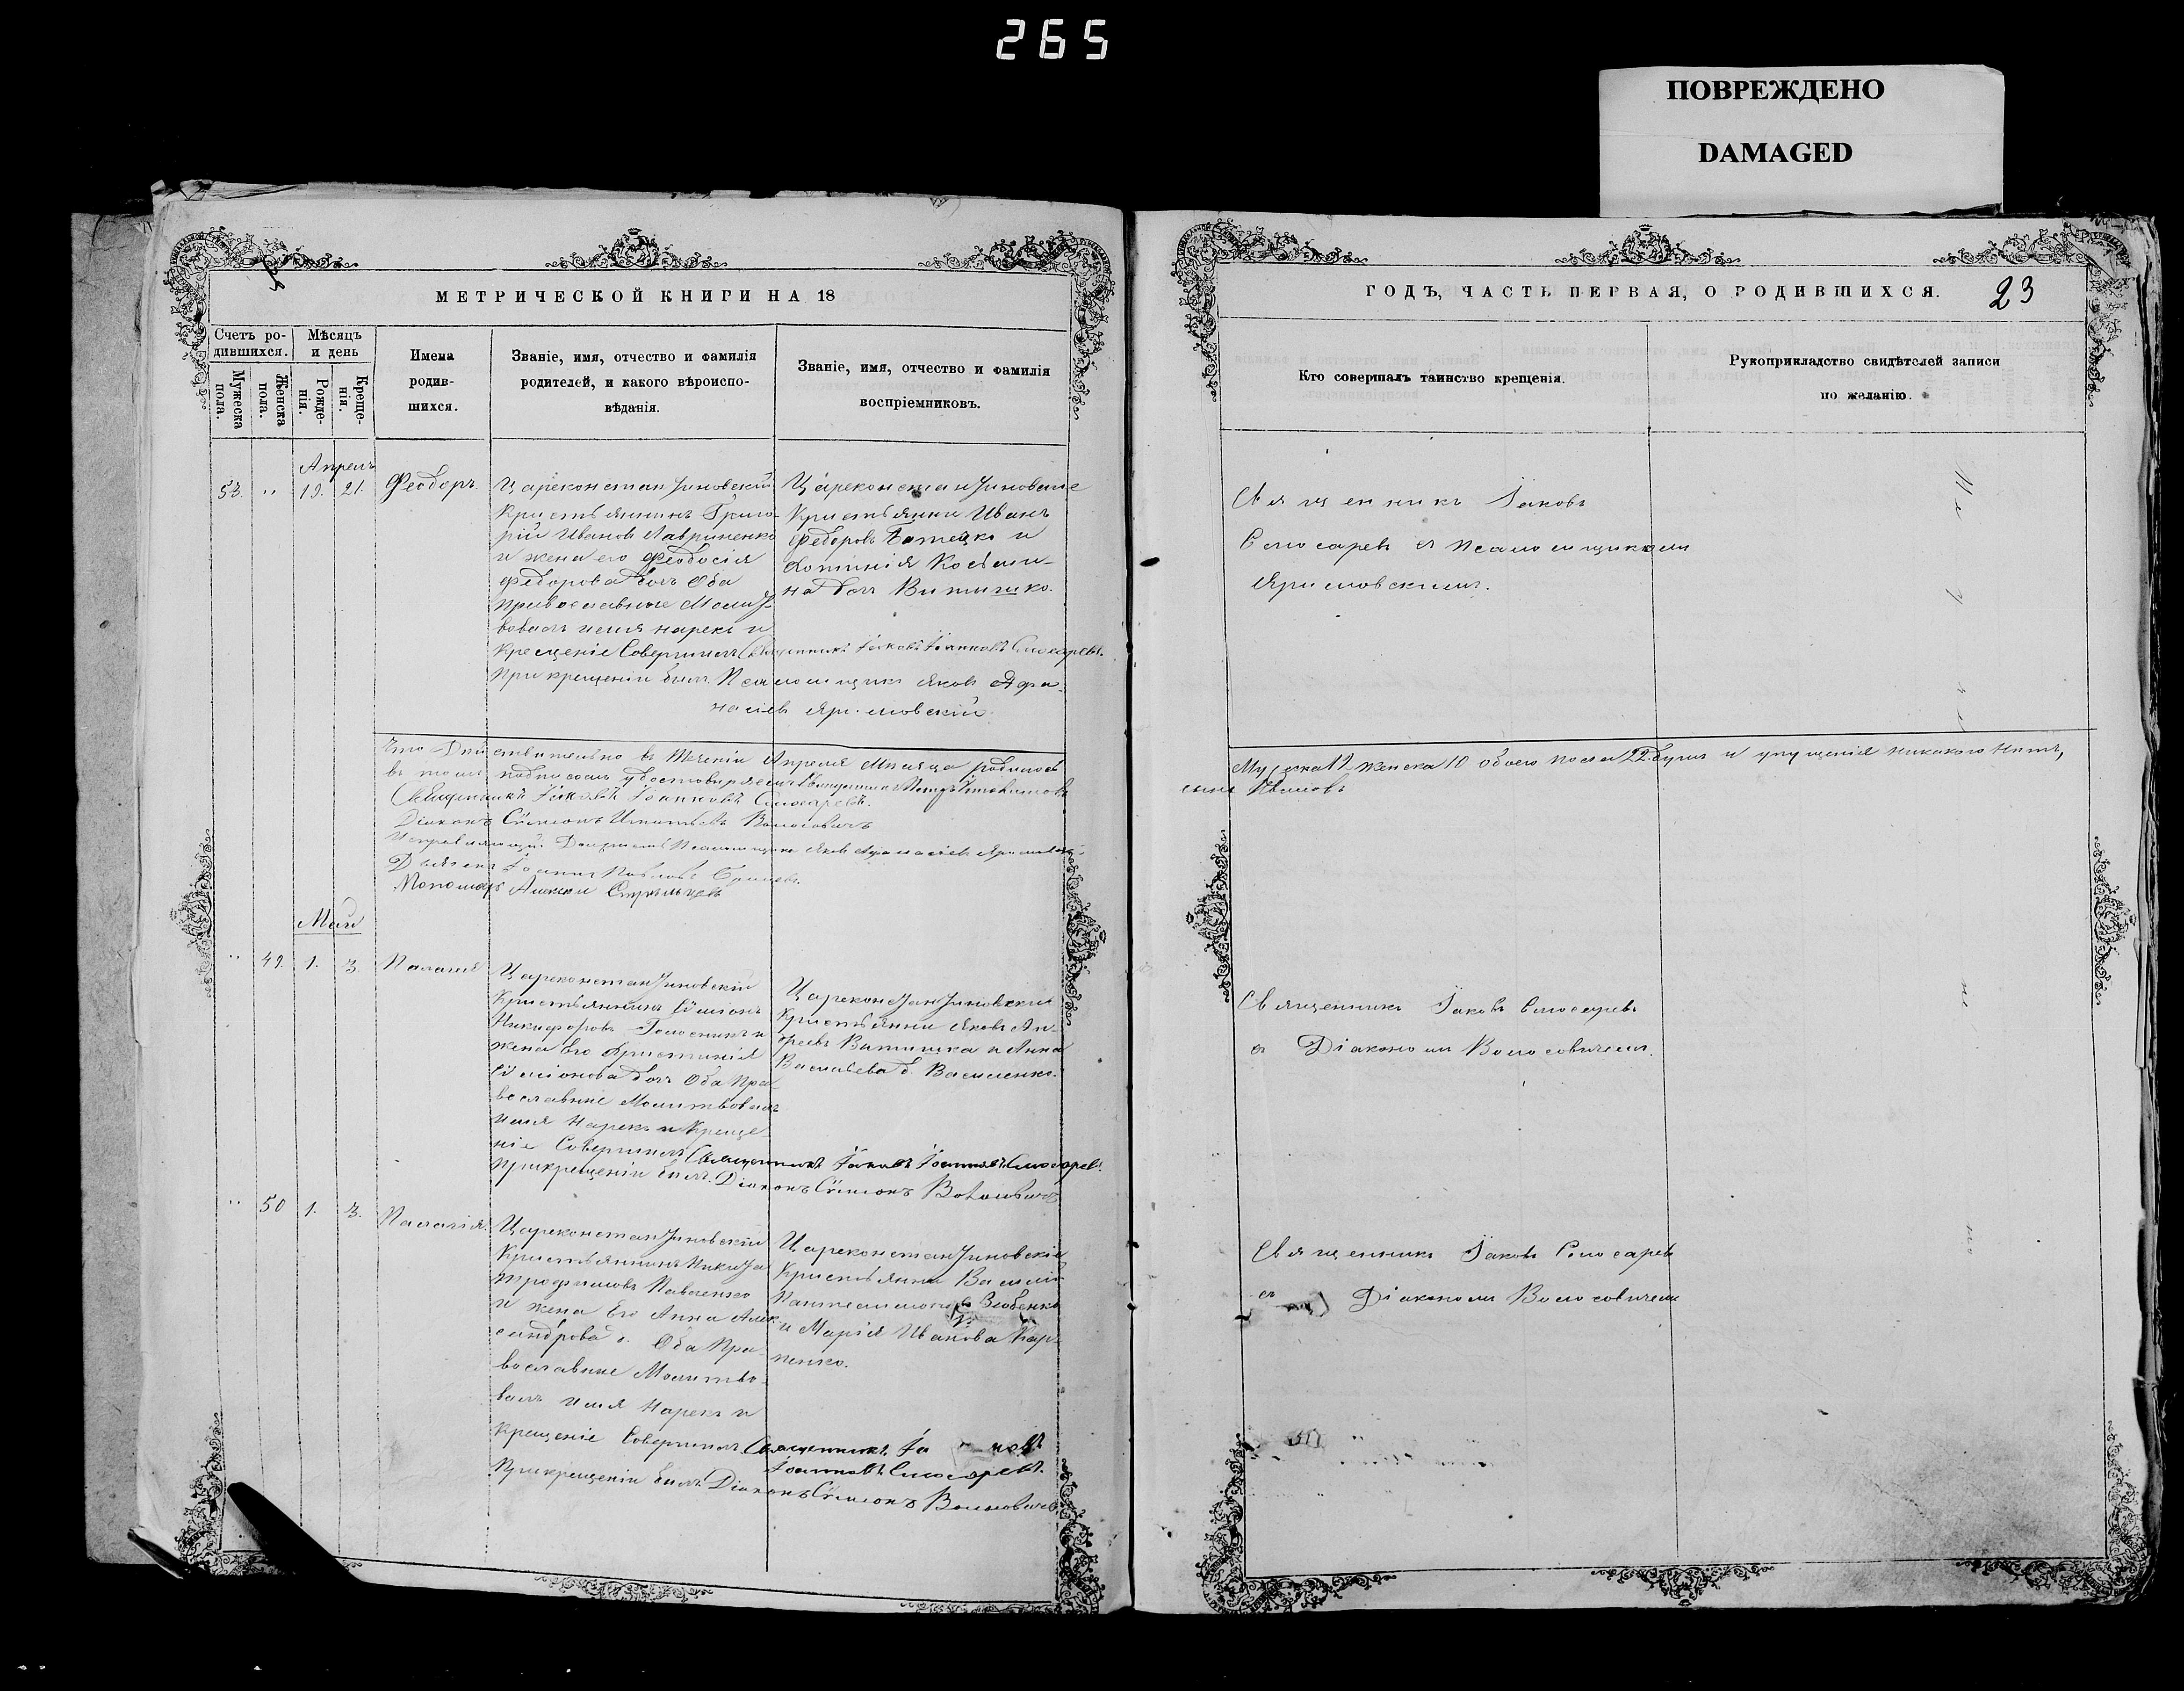 265
ПОВРЕЖДЕНО
DAMAGED
МЕТРИЧЕСКОЙ КНИГИ НА 18
Счетъ ро-
дившихся.
Мѣсяцъ
и день
Мужеска
пола.
Женска
пола.
Рожде-
нія.
Креще-
нія.
Имена
родив-
шихся.
Званіе, имя, отчество и фамилія
родителей, и какого вѣроиспо-
вѣданія.
Званіе, имя, отчество и фамилія
воспріемниковъ.
Апрель
53. " 19. 21. Феодоръ.
Цареконстантиновскій
Крестьянинъ Григо-
рій Ивановъ Лавриненко
и жена его Феодосія
Федорова доч Оба
православные Молит-
вовалъ имя нарекъ и
крещеніе Совершилъ Священникъ Іаковъ Іоанновъ Слюсаревъ.
При крещеніи былъ Псаломщикъ Яковъ Афа-
насіевъ Яримовскій
Цареконстантиновскіе
Крестьяне Иванъ
Федоровъ и
Фотинія Косьми-
на доч
Что Дѣйствительно въ теченіи Апреля Мѣсяца родилось
въ томъ подписомъ удостовѣряемъ Священникъ Петръ
Священникъ Іаковъ Іоанновъ Слюсаревъ.
Діаконъ Сѵмеонъ Волосовичъ
Псаломщика Яковъ Афанасіевъ
Іоаннъ Павловъ
Пономарь Алексѣй Стрѣльцевъ
Май
" 49. 1. 3. Палагія
Цареконстантиновскій
Крестьянинъ Сѵмеонъ
Никифоровъ и
жена Его Христинія
Сѵмеонова доч Оба Пра-
вославные Молитвовалъ
имя Нарекъ и Креще-
ніе Совершилъ Священникъ Іаковъ Іоанновъ Слюсаревъ.
При крещеніи былъ Діаконъ Сѵмеонъ Волосовичъ
Цареконстантиновскіе
Крестьяне Яковъ Ан-
дреевъ и Анна
Васильева д. Василенко.
" 50 1. 3. Палагія.
Цареконстантиновскій
Крестьянинъ Никита
Трофимовъ Павленко
и жена Его Анна Алек-
сандрова д. Оба Пра-
вославные Молитво-
валъ имя Нарекъ и
Крещеніе Совершилъ Священникъ Іа ковъ
Іоанновъ Слюсаревъ.
При крещеніи былъ Діаконъ Сѵмеонъ Волосовичъ
Цареконстантиновскіе
Крестьяне Василій
Пантелимоновъ
и Марія Иванова Кар-
пенко.
ГОДЪ, ЧАСТЬ ПЕРВАЯ, О РОДИВШИХСЯ.
23
Кто совершалъ таинство крещенія.
Рукоприкладство свидѣтелей записи
по желанію.
Священникъ Іаковъ
Слюсаревъ съ Псаломщикомъ
Яримовскимъ.
Мужска 12 женска 10 обоего пола 22 души и упущенія никакого нѣтъ,
Священникъ Іаковъ Слюсаревъ
съ Діакономъ Волосовичемъ.
Священникъ Іаковъ Слюсаревъ
съ Діакономъ Волосовичемъ